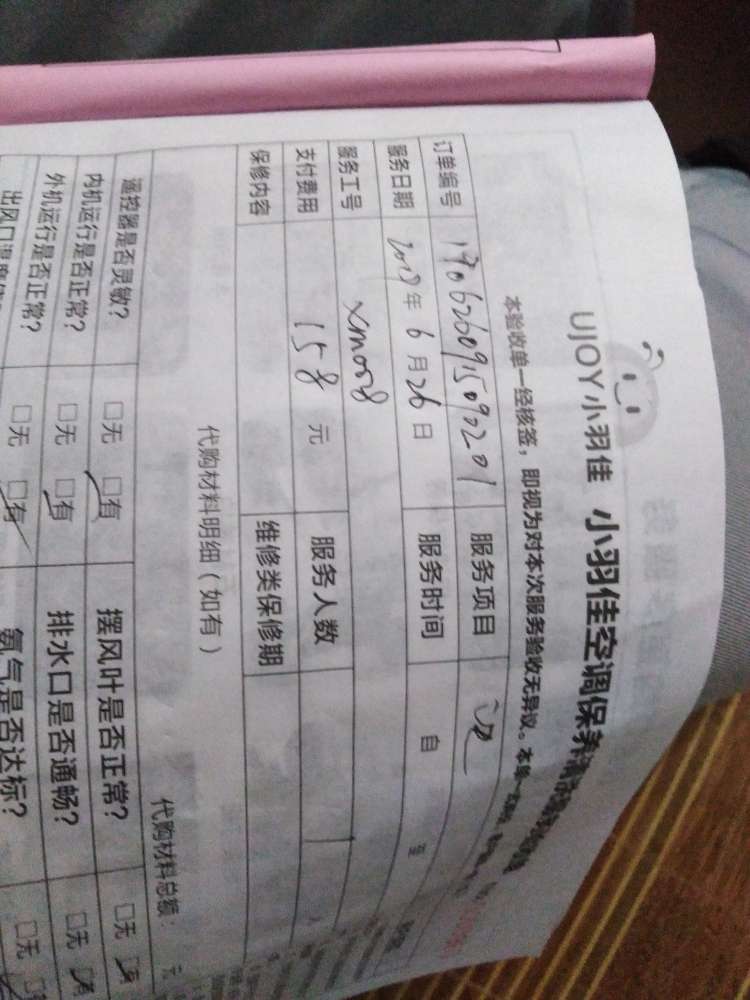 UJOY小羽佳 小羽佳空调保养清洗
本验收单一经核签，即视为对本次服务验收无异议。本单一式
订单编号 1906260915090201 服务项目
服务日期 2019年6月26日 服务时间 自 至
服务工号 xm008
支付费用 158 元 服务人数
保修内容 维修类保修期
代购材料明细（如有）
代购材料总额： 元
遥控器是否灵敏？ □无 □有 摆风叶是否正常？ □无 □有
内机运行是否正常？ □无 □有 排水口是否通畅？ □无 □有
外机运行是否正常？ □无 □有 氨气是否达标？ □无
出风口温度